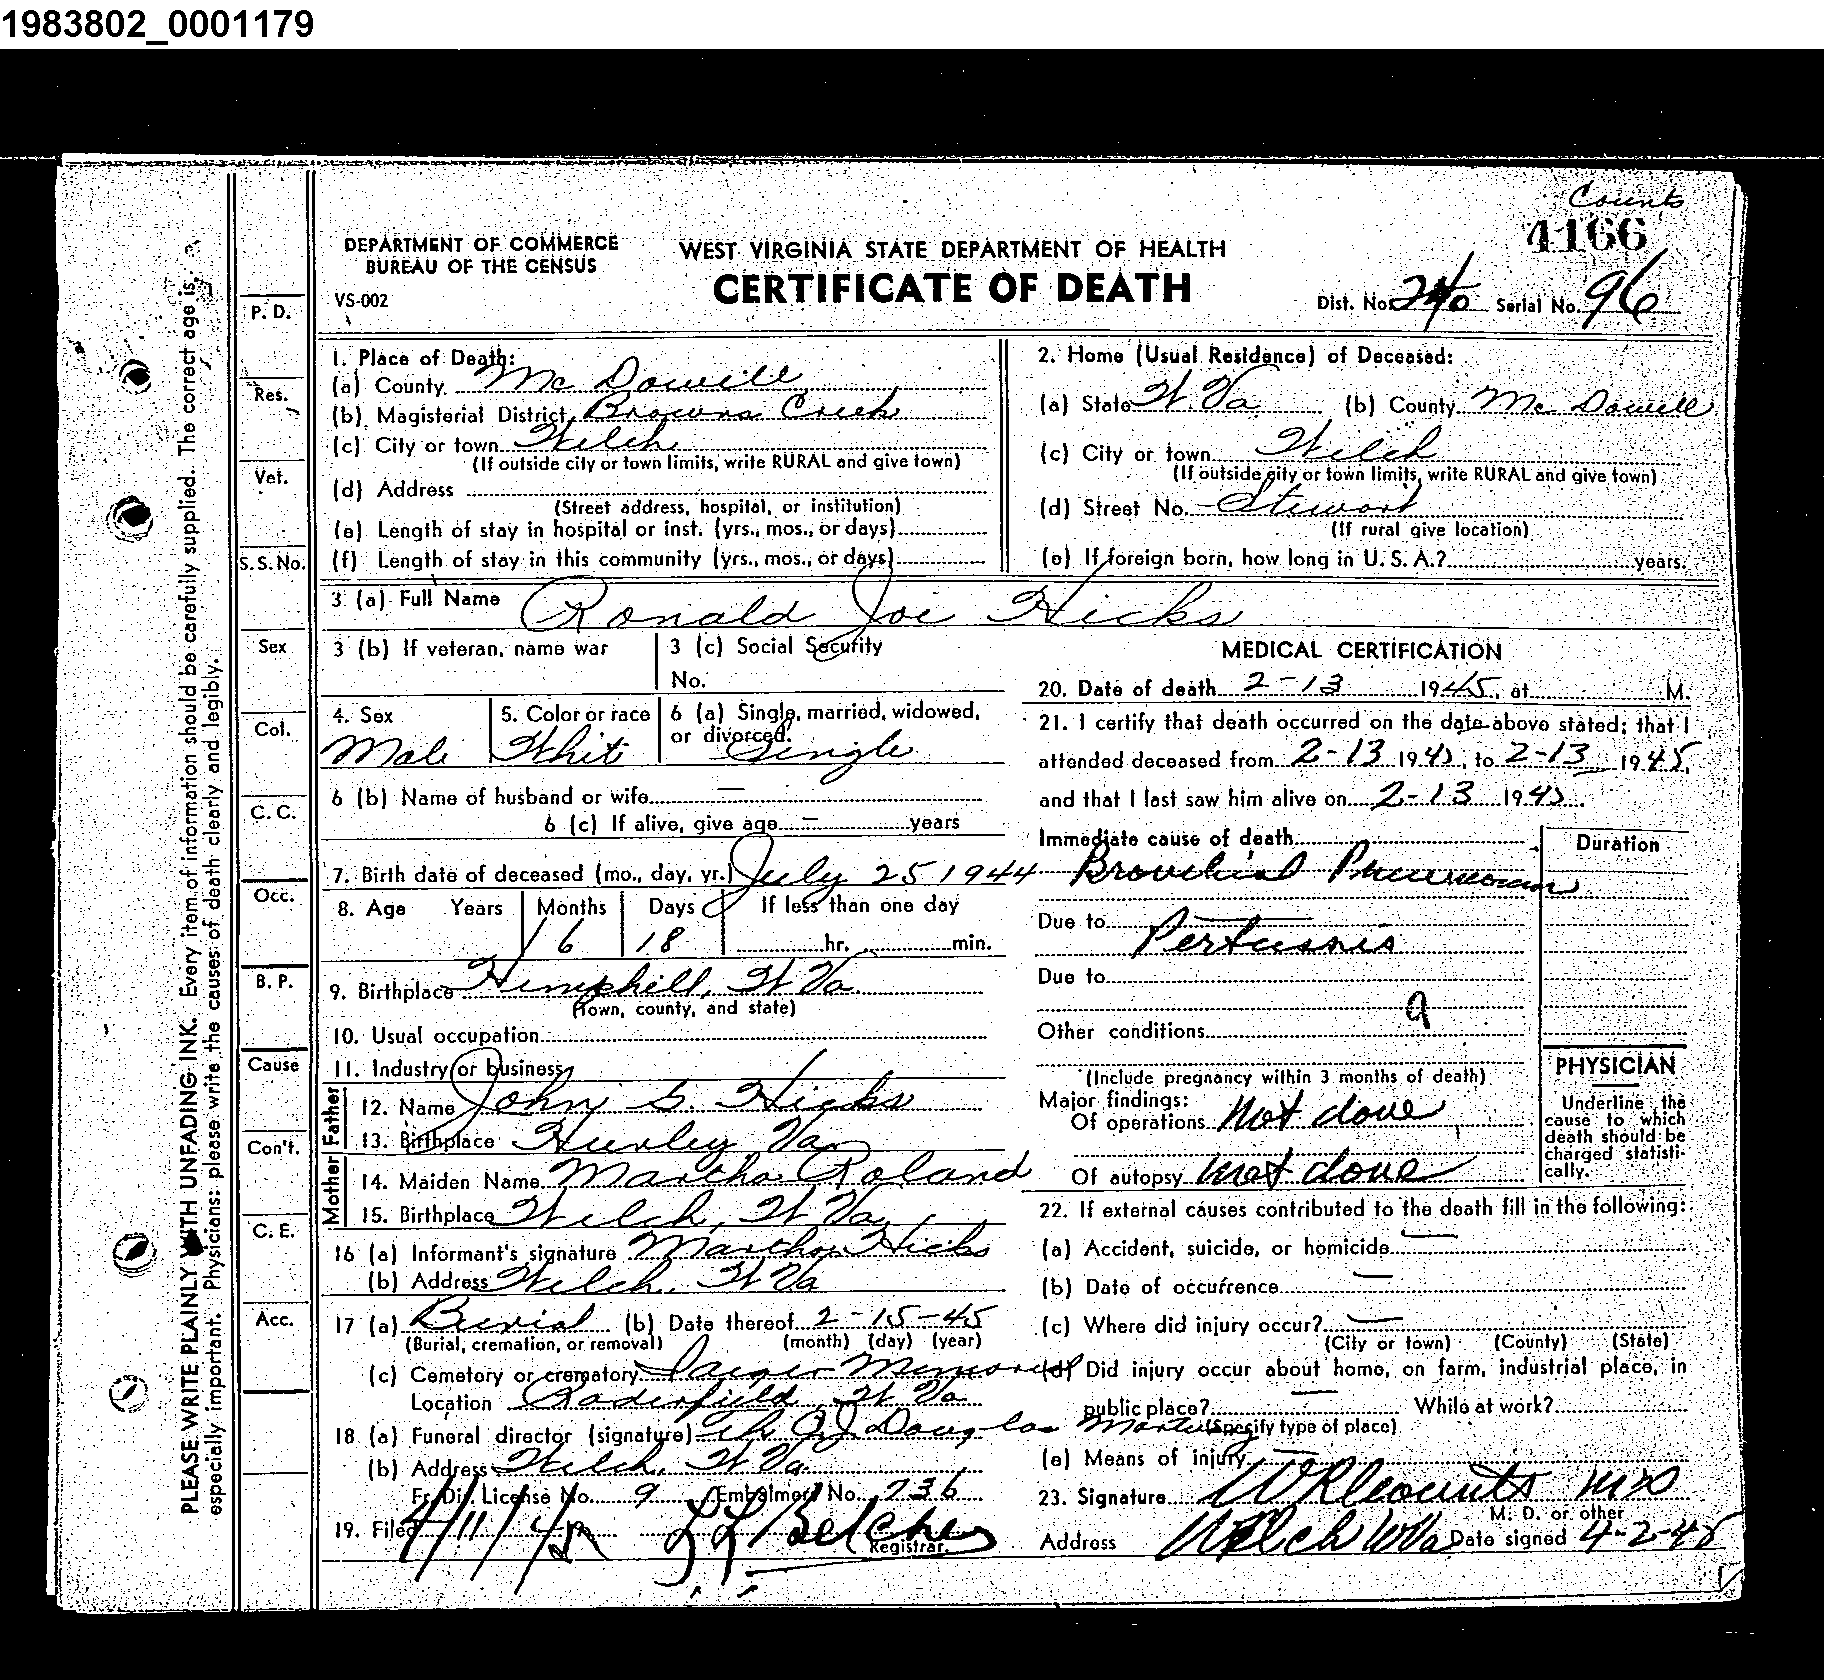 1983802_0001179
Counts
4166
DEPARTMENT OF COMMERCE
BUREAU OF THE CENSUS
VS-002
WEST VIRGINIA STATE DEPARTMENT OF HEALTH
CERTIFICATE OF DEATH
Dist. No. 240 Serial No. 96
PLEASE WRITE PLAINLY WITH UNFADING INK. Every item of information should be carefully supplied. The correct age is
especially important. Physicians: please write the causes of death clearly and legibly.
P. D.
Res.
Vet.
S. S. No.
Sex
Col.
C. C.
Occ.
B. P.
Cause
Con't.
C. E.
Acc.
1. Place of Death:
(a) County Mc Dowell
(b) Magisterial District Browns Creek
(c) City or town Welch
(If outside city or town limits, write RURAL and give town)
(d) Address
(Street address, hospital, or institution)
(e) Length of stay in hospital or inst. (yrs., mos., or days)
(f) Length of stay in this community (yrs., mos., or days)
2. Home (Usual Residence) of Deceased:
(a) State W. Va (b) County Mc Dowell
(c) City or town Welch
(If outside city or town limits, write RURAL and give town)
(d) Street No. Stewart
(If rural give location)
(e) If foreign born, how long in U. S. A.? years.
3 (a) Full Name Ronald Joe Hicks
3 (b) If veteran, name war
3 (c) Social Security
No.
4. Sex
Male
5. Color or race
Whit
6 (a) Single, married, widowed,
or divorced.
Single
6 (b) Name of husband or wife —
6 (c) If alive, give age — years
7. Birth date of deceased (mo., day, yr.) July 25 1944
8. Age Years Months Days If less than one day
6 18 hr. min.
9. Birthplace Hemphill, W Va
(Town, county, and state)
10. Usual occupation
11. Industry or business
Father
12. Name John S. Hicks
13. Birthplace Hurley Va
Mother
14. Maiden Name Martha Roland
15. Birthplace Welch, W Va
16 (a) Informant's signature Martha Hicks
(b) Address Welch, W Va
17 (a) Burial (b) Date thereof 2-15-45
(Burial, cremation, or removal) (month) (day) (year)
(c) Cemetery or crematory Iaeger Memorial
Location Roderfield, W Va
18 (a) Funeral director (signature) The O.J. Douglas Mortuary
(b) Address Welch, W Va
Fr. Dir. License No. 9 Embalmers No. 736
19. Filed 4/11/45 L L Belcher
Registrar.
MEDICAL CERTIFICATION
20. Date of death 2-13 1945, at M.
21. I certify that death occurred on the date above stated; that I
attended deceased from 2-13 1945, to 2-13 1945,
and that I last saw him alive on 2-13 1945
Immediate cause of death
Duration
Bronchial Pneumonia
Due to Pertussis
Due to
9
Other conditions
(Include pregnancy within 3 months of death)
Major findings:
Of operations not done
Of autopsy not done
PHYSICIAN
Underline the
cause to which
death should be
charged statisti-
cally.
22. If external causes contributed to the death fill in the following:
(a) Accident, suicide, or homicide —
(b) Date of occurrence —
(c) Where did injury occur? —
(City or town) (County) (State)
(d) Did injury occur about home, on farm, industrial place, in
public place? — While at work?
(Specify type of place)
(e) Means of injury —
23. Signature W R Counts MD
M. D. or other
Address Welch W Va Date signed 4-2-45